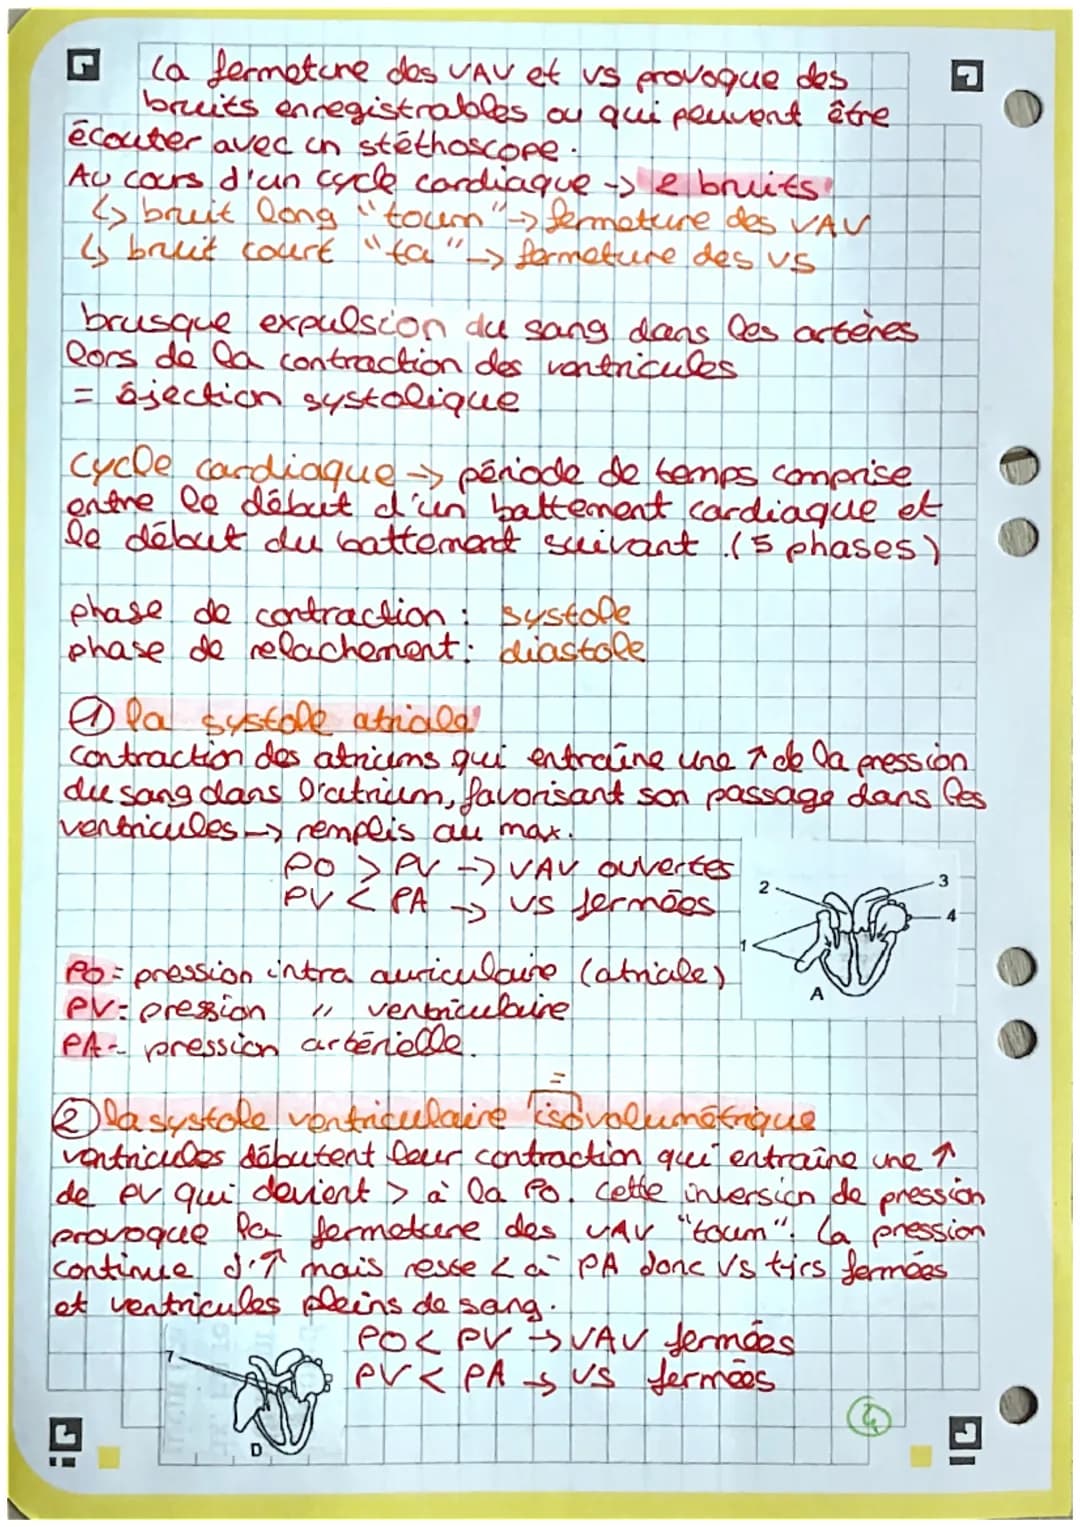 La fermeture des VAV et VS provoque des
bruits enregistrables ou qui peuvent être
écouter avec un stéthoscope.
Au cours d'un cycle cardiaque → 2 bruits
↳ bruit long "toum" → fermeture des VAV
↳ bruit court "ta" → fermeture des VS
brusque expulsion du sang dans les artères
lors de la contraction des ventricules
= éjection systolique
cycle cardiaque → période de temps comprise
entre le début d'un battement cardiaque et
le début du battement suivant. (5 phases)
phase de contraction : systole
phase de relachement : diastole
① la systole atriale
contraction des atriums qui entraîne une ↑ de la pression
du sang dans l'atrium, favorisant son passage dans les
ventricules → remplis au max.
PO > PV → VAV ouvertes
PV < PA → VS fermées
2
3
4
1
A
PO = pression intra auriculaire (atriale)
PV = pression " ventriculaire
PA = pression artérielle.
=
② la systole ventriculaire isovolumétrique
ventricules débutent leur contraction qui entraîne une ↑
de PV qui devient > à la PO. Cette inversion de pression
provoque la fermeture des VAV "toum". La pression
continue d'↑ mais resse < à PA donc VS tjrs fermées
et ventricules pleins de sang.
PO < PV → VAV fermées
PV < PA → VS fermées
7
D